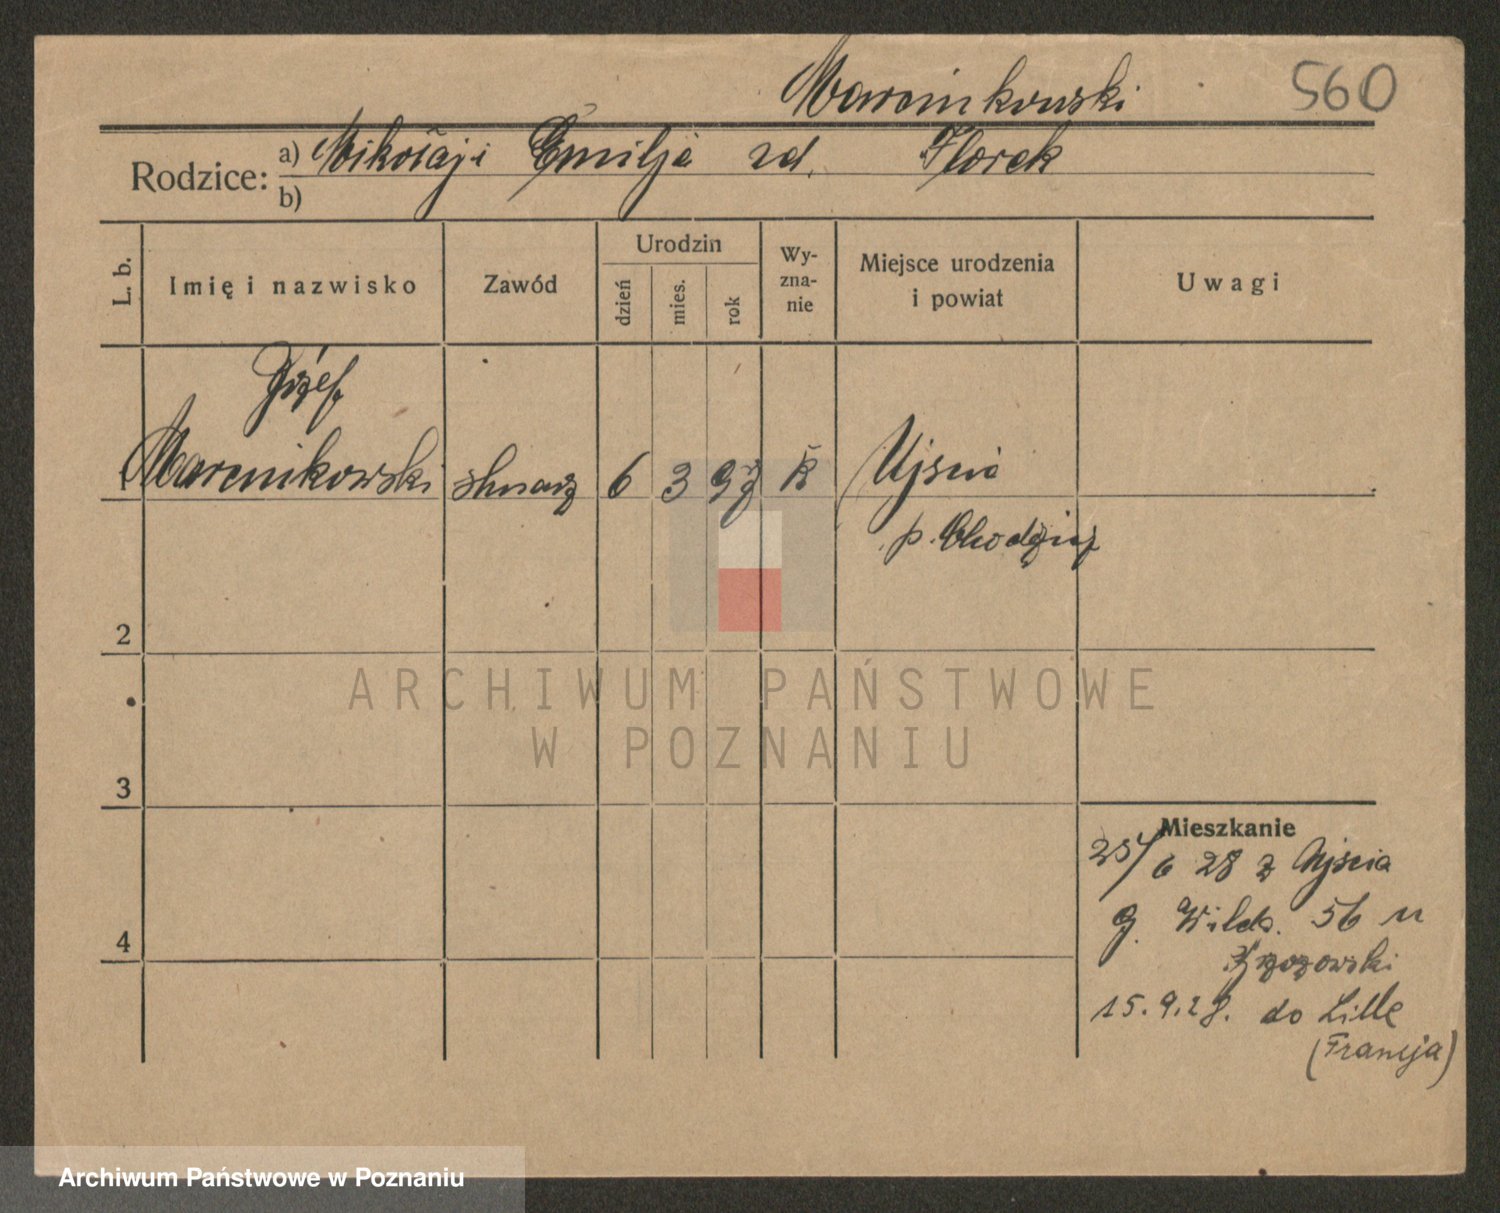 Marcinkowski 560
Rodzice: a) Mikołaj i Emilja zd. Florek
b)
L. b.
Imię i nazwisko
Zawód
Urodzin
dzień
mies.
rok
Wy-
zna-
nie
Miejsce urodzenia
i powiat
Uwagi
Józef
1 Marcinkowski 6 3 K Ujście
p. Chodzież
2
3
4
Mieszkanie
25/6 28 z Ujścia
G. Wilda. 56 u
Brzozowski
15.9.28. do Lille
(Francja)
ARCHIWUM PAŃSTWOWE
W POZNANIU
Archiwum Państwowe w Poznaniu